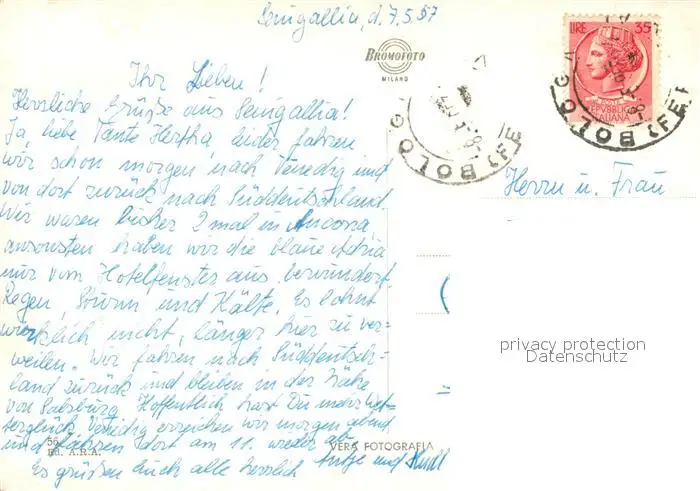 Senigallia, d. 7.5.57
BROMOFOTO
MILANO
LIRE 35
REPVBBLICA
ITALIANA
BOLOGNA (FE
BOLOG (FE
Ihr Lieben!
Herzliche Grüße aus Senigallia!
Ja, liebe Tante Hertha, leider fahren
wir schon morgen nach Venedig und
von dort zurück nach Süddeutschland
Wir waren bisher 2 mal in Ancona,
ansonsten haben wir die blaue Adria
nur vom Hotelfenster aus bewundert
Regen, Sturm und Kälte. Es lohnt
wirklich nicht, länger hier zu ver-
weilen. Wir fahren nach Süddeutsch-
land zurück und bleiben in der Nähe
von Salzburg. Hoffentlich hast Du mehr Wet-
terglück. Venedig erreichen wir morgen abend
und fahren dort am 11. wieder ab
Es grüßen Euch alle herzlich Antje und
Herrn u. Frau
privacy protection
Datenschutz
56
Ed. A.R.A.
VERA FOTOGRAFIA